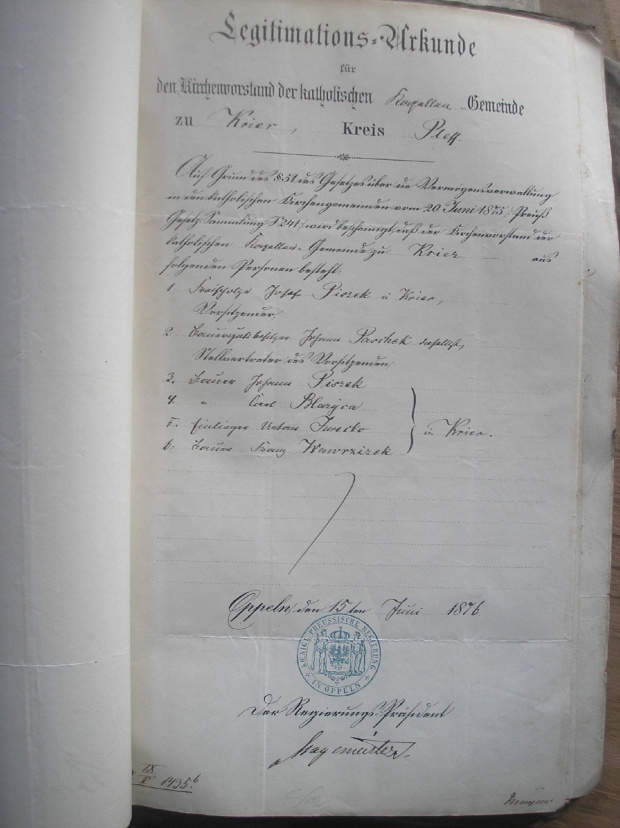 Legitimations-Urkunde
für
den Kirchenvorstand der katholischen Kapellen-Gemeinde
zu Krier, Kreis Pleß.
Auf Grund des § 51 des Gesetzes über die Vermögensverwaltung
in den katholischen Kirchengemeinden vom 20 Juni 1875, Preuß.
Gesetz-Sammlung S. 241, wird bescheinigt, daß der Kirchenvorstand der
katholischen Kapellen-Gemeinde zu Krier aus
folgenden Personen besteht:
1. Josef Piszek u Krier,
Vorsitzender,
2. Bauergutsbesitzer Johann Paschek daselbst,
Stellvertreter des Vorsitzenden,
3. Bauer Johann Piszek
4. " Carl Blazyca
5. Einlieger Anton Jureczko
6. Bauer Franz Wawrzizek
u Krier.
Oppeln, den 15ten Juni 1876
KÖNIGL. PREUSSISCHE REGIERUNG
IN OPPELN
Der Regierungs-Präsident
Hagemeister.
IX
V 1435.b